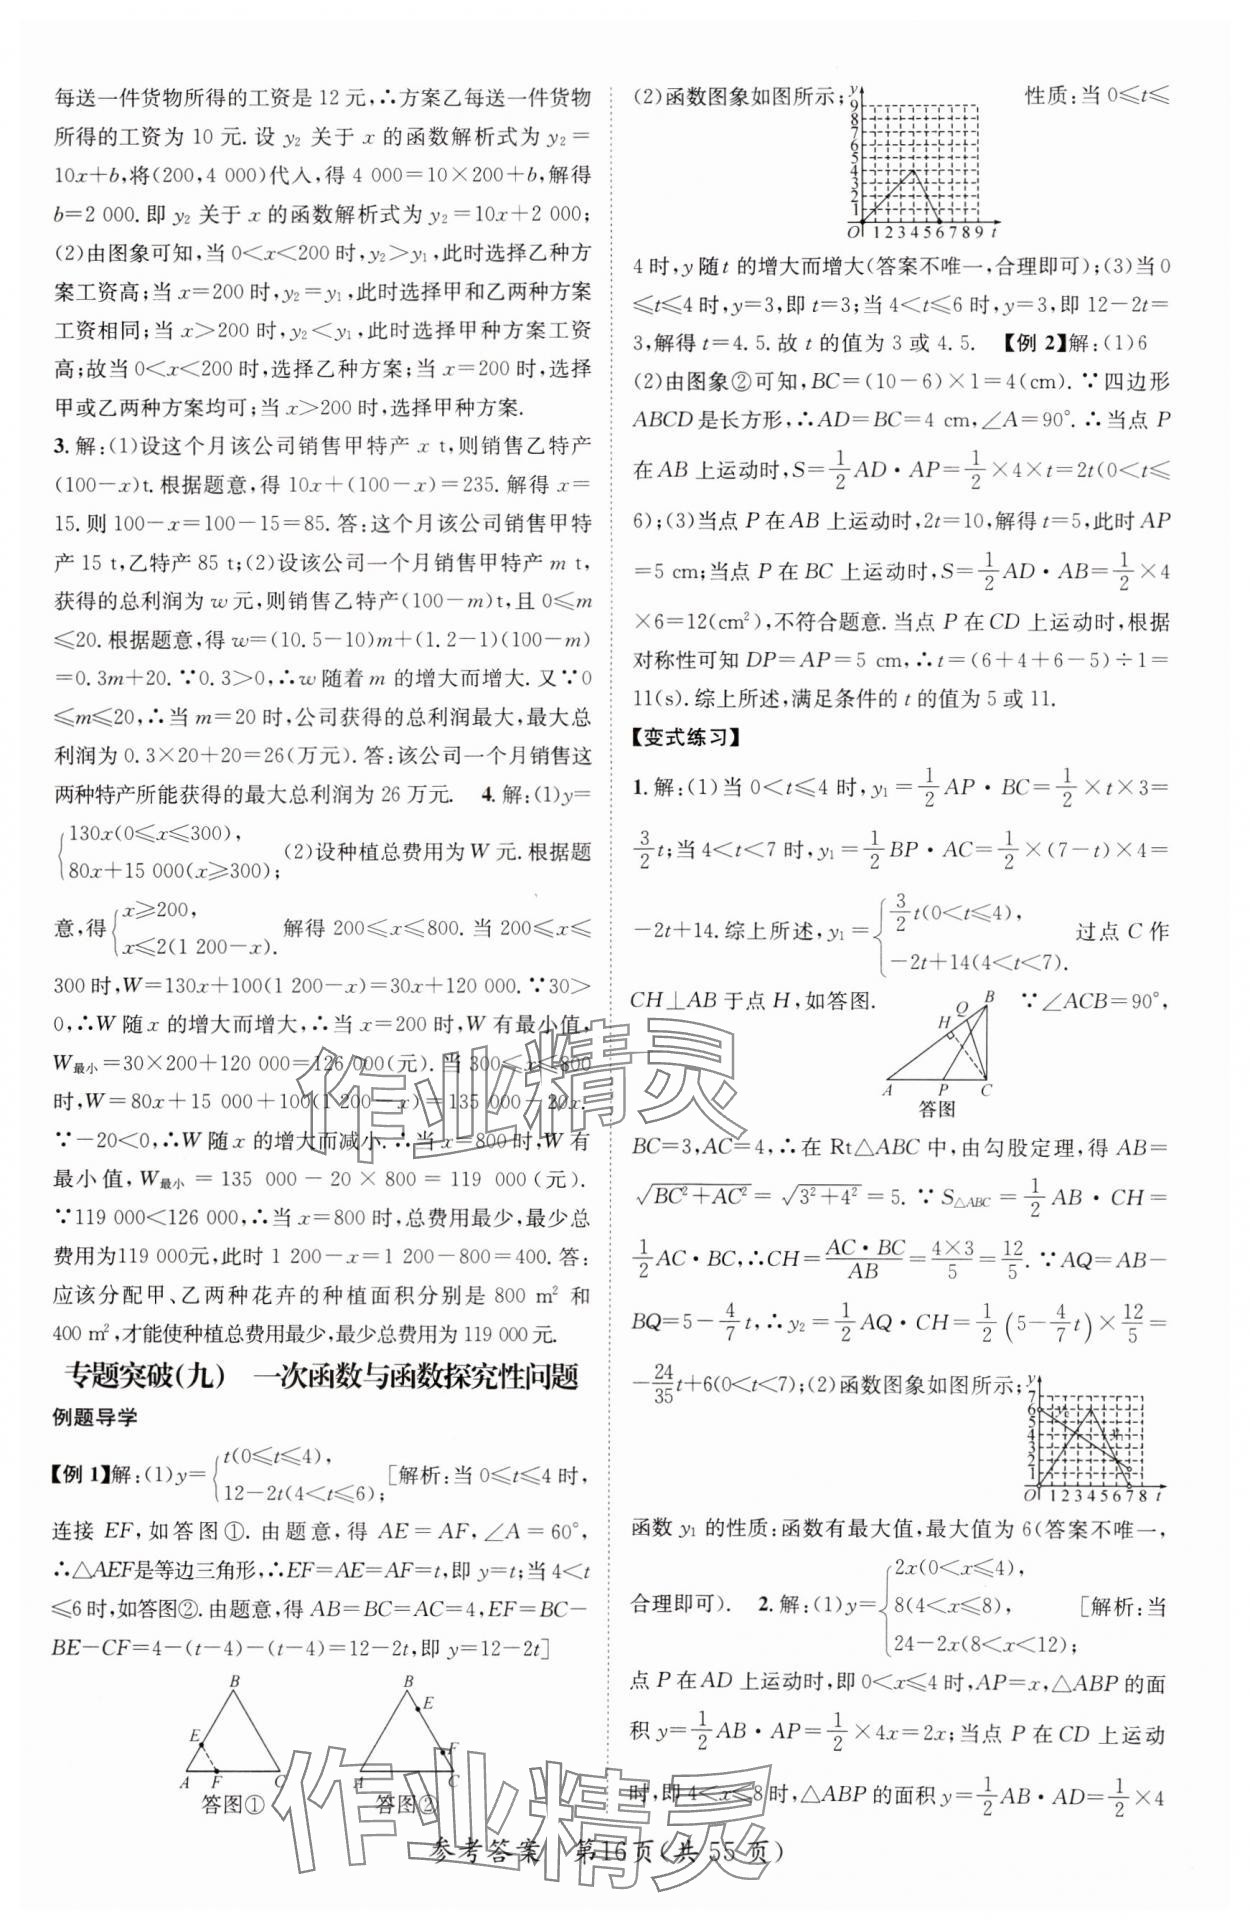 每送一件货物所得的工资是 12 元,∴方案乙每送一件货物
所得的工资为 10 元. 设 y₂ 关于 x 的函数解析式为 y₂=
10x+b,将(200,4 000)代入,得 4 000=10×200+b,解得
b=2 000.即 y₂ 关于 x 的函数解析式为 y₂=10x+2 000;
(2)由图象可知,当 0<x<200 时,y₂>y₁,此时选择乙种方
案工资高;当 x=200 时,y₂=y₁,此时选择甲和乙两种方案
工资相同;当 x>200 时,y₂<y₁,此时选择甲种方案工资
高;故当 0<x<200 时,选择乙种方案;当 x=200 时,选择
甲或乙两种方案均可;当 x>200 时,选择甲种方案.
3.解:(1)设这个月该公司销售甲特产 x t,则销售乙特产
(100-x)t.根据题意,得 10x+(100-x)=235.解得 x=
15.则 100-x=100-15=85.答:这个月该公司销售甲特
产 15 t,乙特产 85 t;(2)设该公司一个月销售甲特产 m t,
获得的总利润为 w 元,则销售乙特产(100-m)t,且 0≤m
≤20.根据题意,得 w=(10.5-10)m+(1.2-1)(100-m)
=0.3m+20.∵0.3>0,∴w 随着 m 的增大而增大.又∵0
≤m≤20,∴当 m=20 时,公司获得的总利润最大,最大总
利润为 0.3×20+20=26(万元).答:该公司一个月销售这
两种特产所能获得的最大总利润为 26 万元. 4.解:(1)y=
{130x(0≤x≤300),
80x+15 000(x≥300); (2)设种植总费用为 W 元.根据题
意,得{x≥200,
x≤2(1 200-x). 解得 200≤x≤800. 当 200≤x≤
300 时,W=130x+100(1 200-x)=30x+120 000.∵30>
0,∴W 随 x 的增大而增大,∴当 x=200 时,W 有最小值,
W最小=30×200+120 000=126 000(元).当 300<x≤800
时,W=80x+15 000+100(1 200-x)=135 000-20x.
∵-20<0,∴W 随 x 的增大而减小.∴当 x=800 时,W 有
最小值,W最小=135 000-20×800=119 000(元).
∵119 000<126 000,∴当 x=800 时,总费用最少,最少总
费用为119 000元,此时 1 200-x=1 200-800=400.答:
应该分配甲、乙两种花卉的种植面积分别是 800 m² 和
400 m²,才能使种植总费用最少,最少总费用为 119 000元.
专题突破(九) 一次函数与函数探究性问题
例题导学
【例 1】解:(1)y={t(0≤t≤4),
12-2t(4<t≤6); [解析:当 0≤t≤4 时,
连接 EF,如答图①. 由题意,得 AE=AF,∠A=60°,
∴△AEF是等边三角形,∴EF=AE=AF=t,即 y=t;当 4<t
≤6时,如答图②.由题意,得 AB=BC=AC=4,EF=BC-
BE-CF=4-(t-4)-(t-4)=12-2t,即 y=12-2t]
B
E
A F C
答图①
B
E
F
A C
答图②
(2)函数图象如图所示; 性质:当 0≤t≤
y
9
8
7
6
5
4
3
2
1
O 1 2 3 4 5 6 7 8 9 t
4 时,y 随 t 的增大而增大(答案不唯一,合理即可);(3)当 0
≤t≤4 时,y=3,即 t=3;当 4<t≤6 时,y=3,即 12-2t=
3,解得 t=4.5.故 t 的值为 3 或 4.5. 【例 2】解:(1)6
(2)由图象②可知,BC=(10-6)×1=4(cm).∵四边形
ABCD 是长方形,∴AD=BC=4 cm,∠A=90°.∴当点 P
在 AB 上运动时,S=1/2 AD·AP=1/2×4×t=2t(0<t≤
6);(3)当点 P 在 AB 上运动时,2t=10,解得 t=5,此时 AP
=5 cm;当点 P 在 BC 上运动时,S=1/2 AD·AB=1/2×4
×6=12(cm²),不符合题意.当点 P 在 CD 上运动时,根据
对称性可知 DP=AP=5 cm,∴t=(6+4+6-5)÷1=
11(s).综上所述,满足条件的 t 的值为 5 或 11.
【变式练习】
1.解:(1)当 0<t≤4 时,y₁=1/2 AP·BC=1/2×t×3=
3/2 t;当 4<t<7 时,y₁=1/2 BP·AC=1/2×(7-t)×4=
-2t+14.综上所述,y₁={3/2 t(0<t≤4),
-2t+14(4<t<7). 过点 C 作
CH⊥AB 于点 H,如答图. ∵∠ACB=90°,
B
Q
H
A P C
答图
BC=3,AC=4,∴在 Rt△ABC 中,由勾股定理,得 AB=
√(BC²+AC²)=√(3²+4²)=5.∵S△ABC=1/2 AB·CH=
1/2 AC·BC,∴CH=AC·BC/AB=4×3/5=12/5.∵AQ=AB-
BQ=5-4/7 t,∴y₂=1/2 AQ·CH=1/2(5-4/7 t)×12/5=
-24/35 t+6(0<t<7);(2)函数图象如图所示;
y
7
6
5
4
3
2
1
O 1 2 3 4 5 6 7 8 t
函数 y₁ 的性质:函数有最大值,最大值为 6(答案不唯一,
合理即可). 2.解:(1)y={2x(0<x≤4),
8(4<x≤8),
24-2x(8<x<12); [解析:当
点 P 在 AD 上运动时,即 0<x≤4 时,AP=x,△ABP 的面
积 y=1/2 AB·AP=1/2×4x=2x;当点 P 在 CD 上运动
时,即 4<x≤8时,△ABP 的面积 y=1/2 AB·AD=1/2×4
参考答案 第16页(共 55 页)
作业精灵
作业精灵